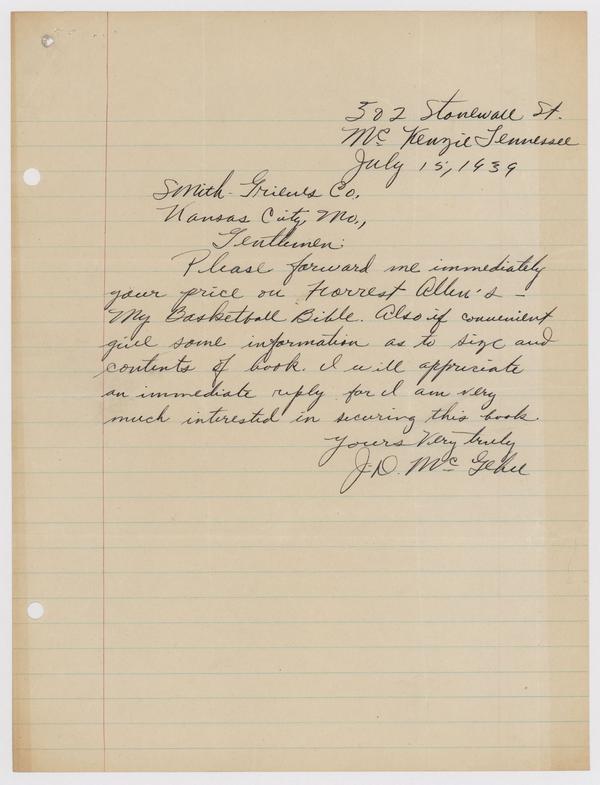 302 Stonewall St.
Mc Kenzie Tennessee
July 15, 1939
Smith-Grieves Co.
Kansas City, Mo.,
Gentlemen:
Please forward me immediately
your price on Forrest Allen's -
My Basketball Bible. Also if convenient
give some information as to size and
contents of book. I will appriciate
an immediate reply for I am very
much interested in securing this book.
Yours Very truly
J.D. Mc Gehee